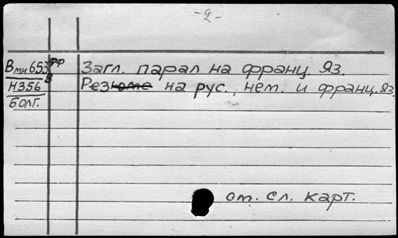 - 2 -
Вмн653 фф Загл. парал на франц яз.
Н356 в Резюме на рус., нем. и франц. яз.
Болг.
от. сл. карт.